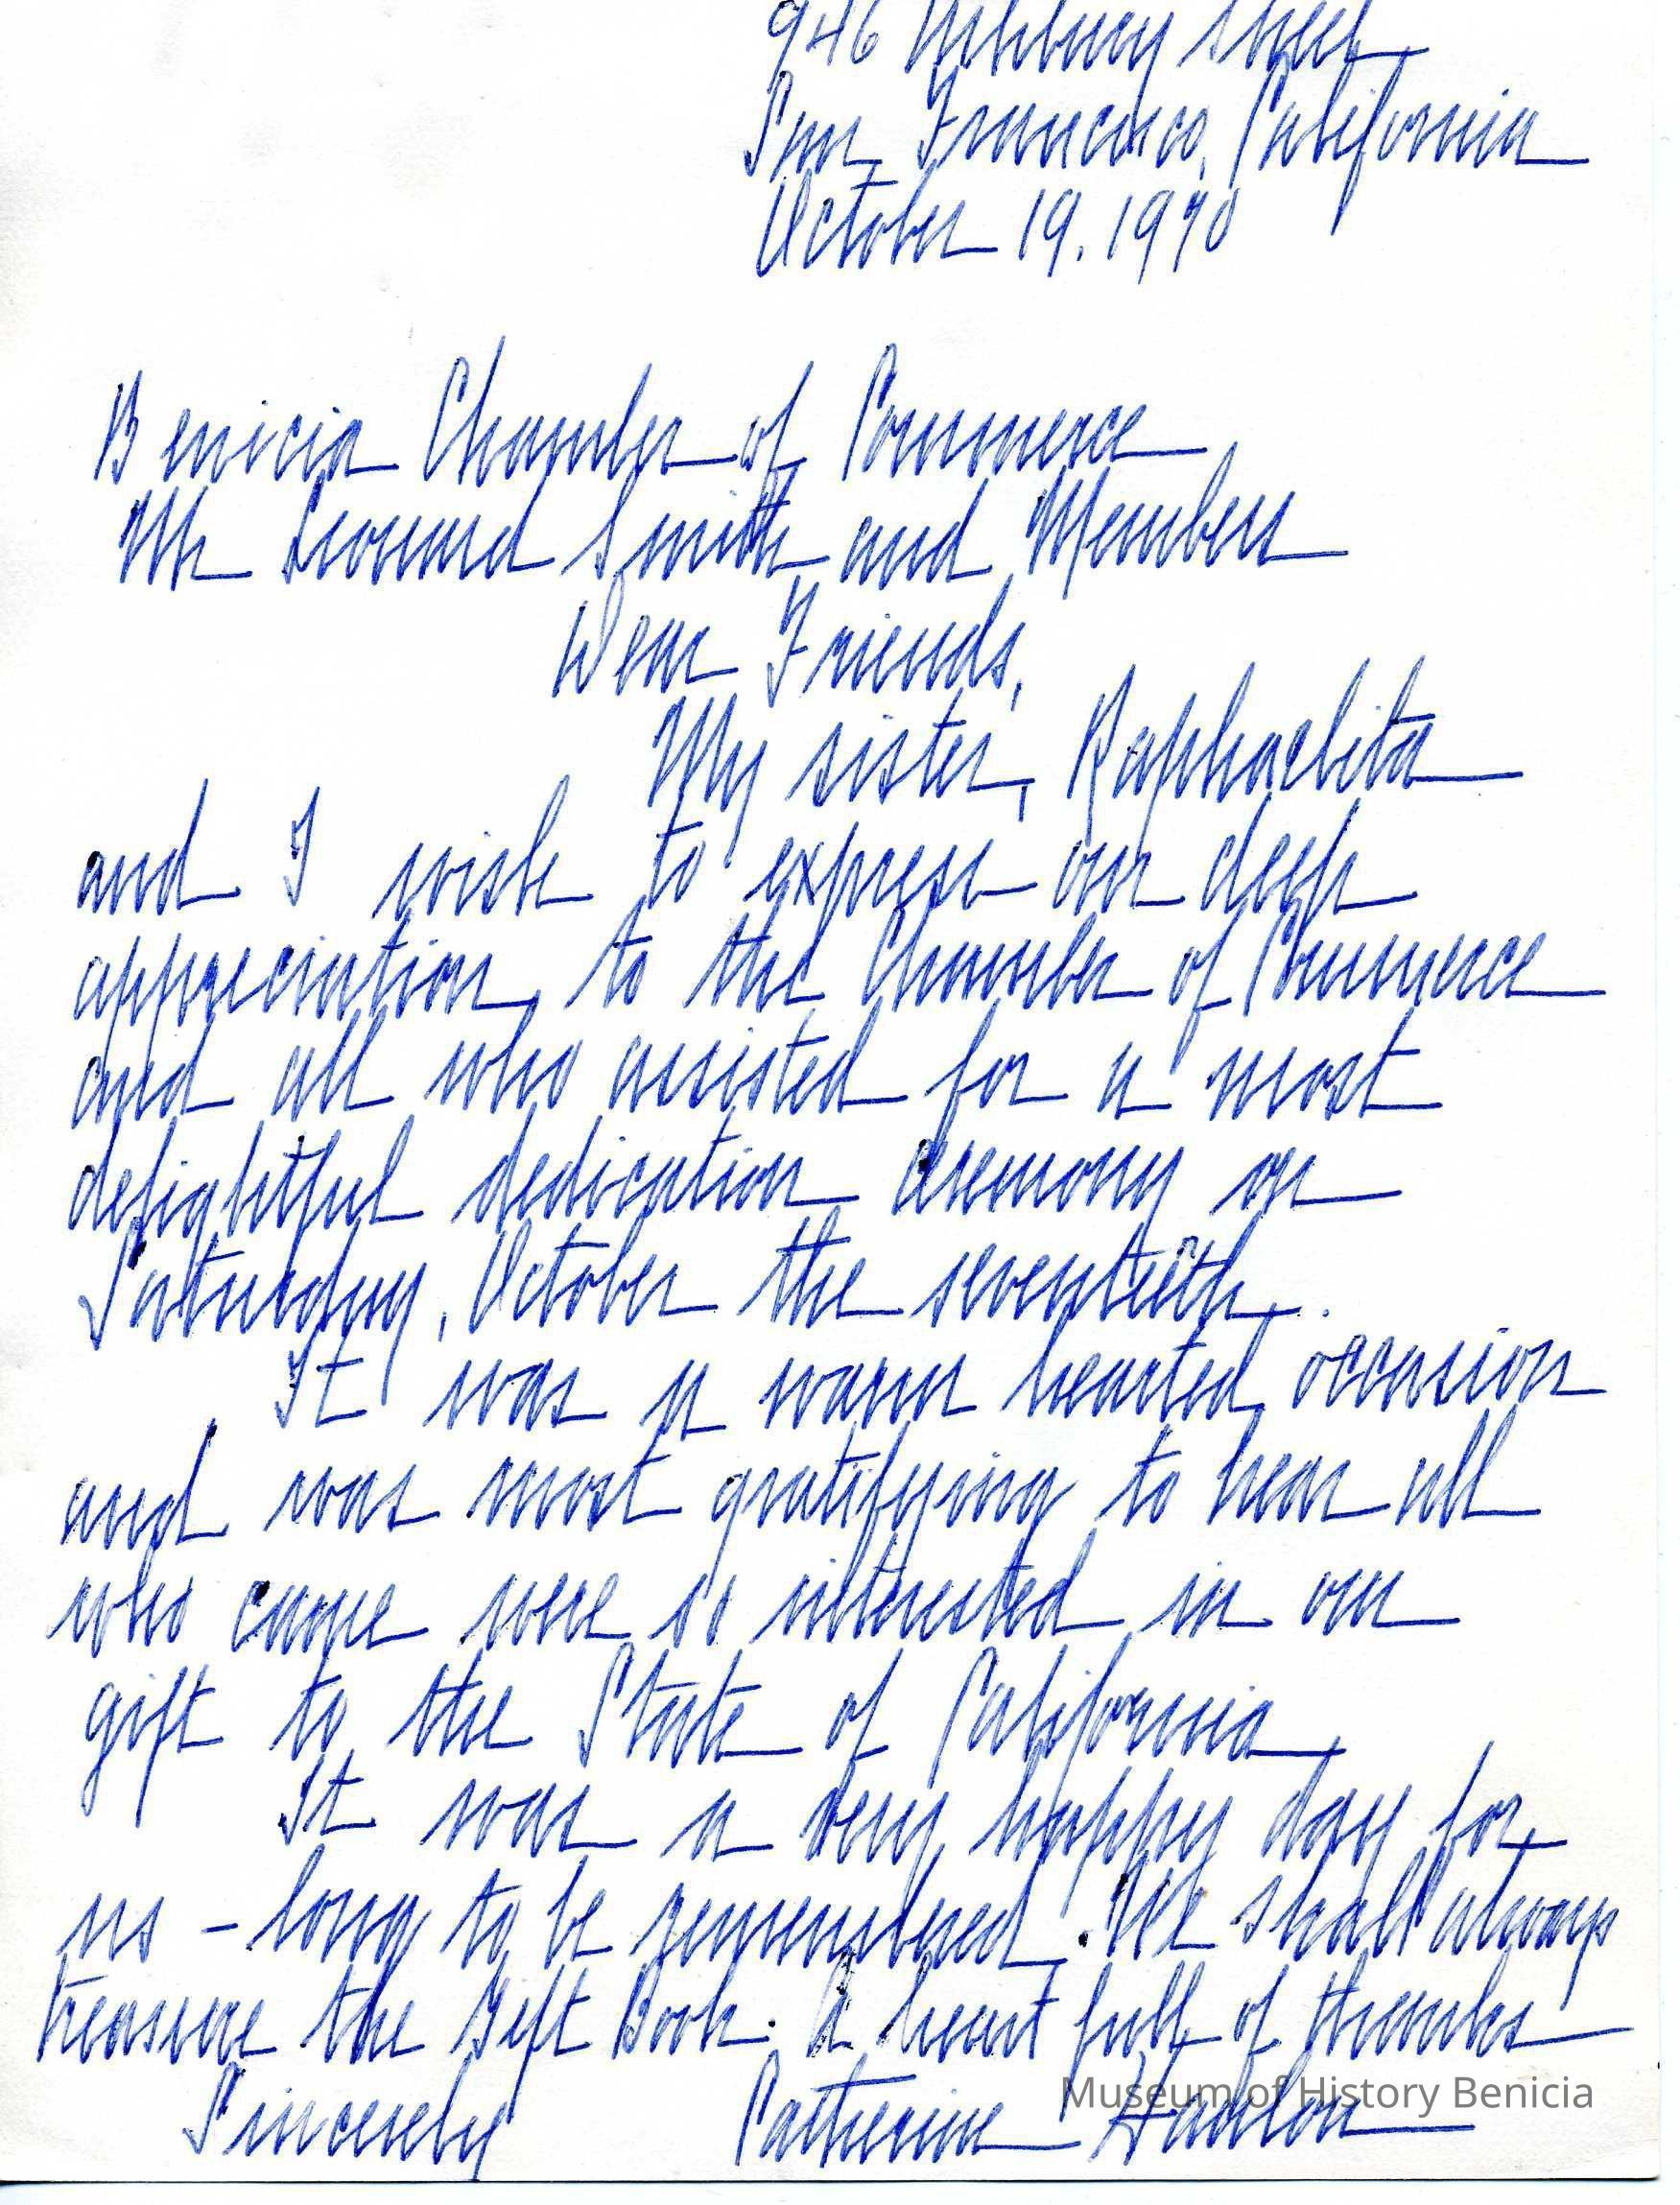 946 Ashbury Street
San Francisco, California
October 19, 1970
Benicia Chamber of Commerce,
Mr Leonard Smith and Members
Dear Friends,
My sister, Raphaelita
and I wish to express our deep
appreciation to the Chamber of Commerce
and all who assisted for a most
delightful dedication ceremony on
Saturday, October the seventeeth.
It was a warm hearted occasion
and was most gratifying to hear all
who came were so interested in our
gift to the State of California.
It was a very happy day for
us - long to be remembered. We shall always
treasure the Gift Book. A heart full of thanks
Sincerely Catherine Hanlon
Museum of History Benicia